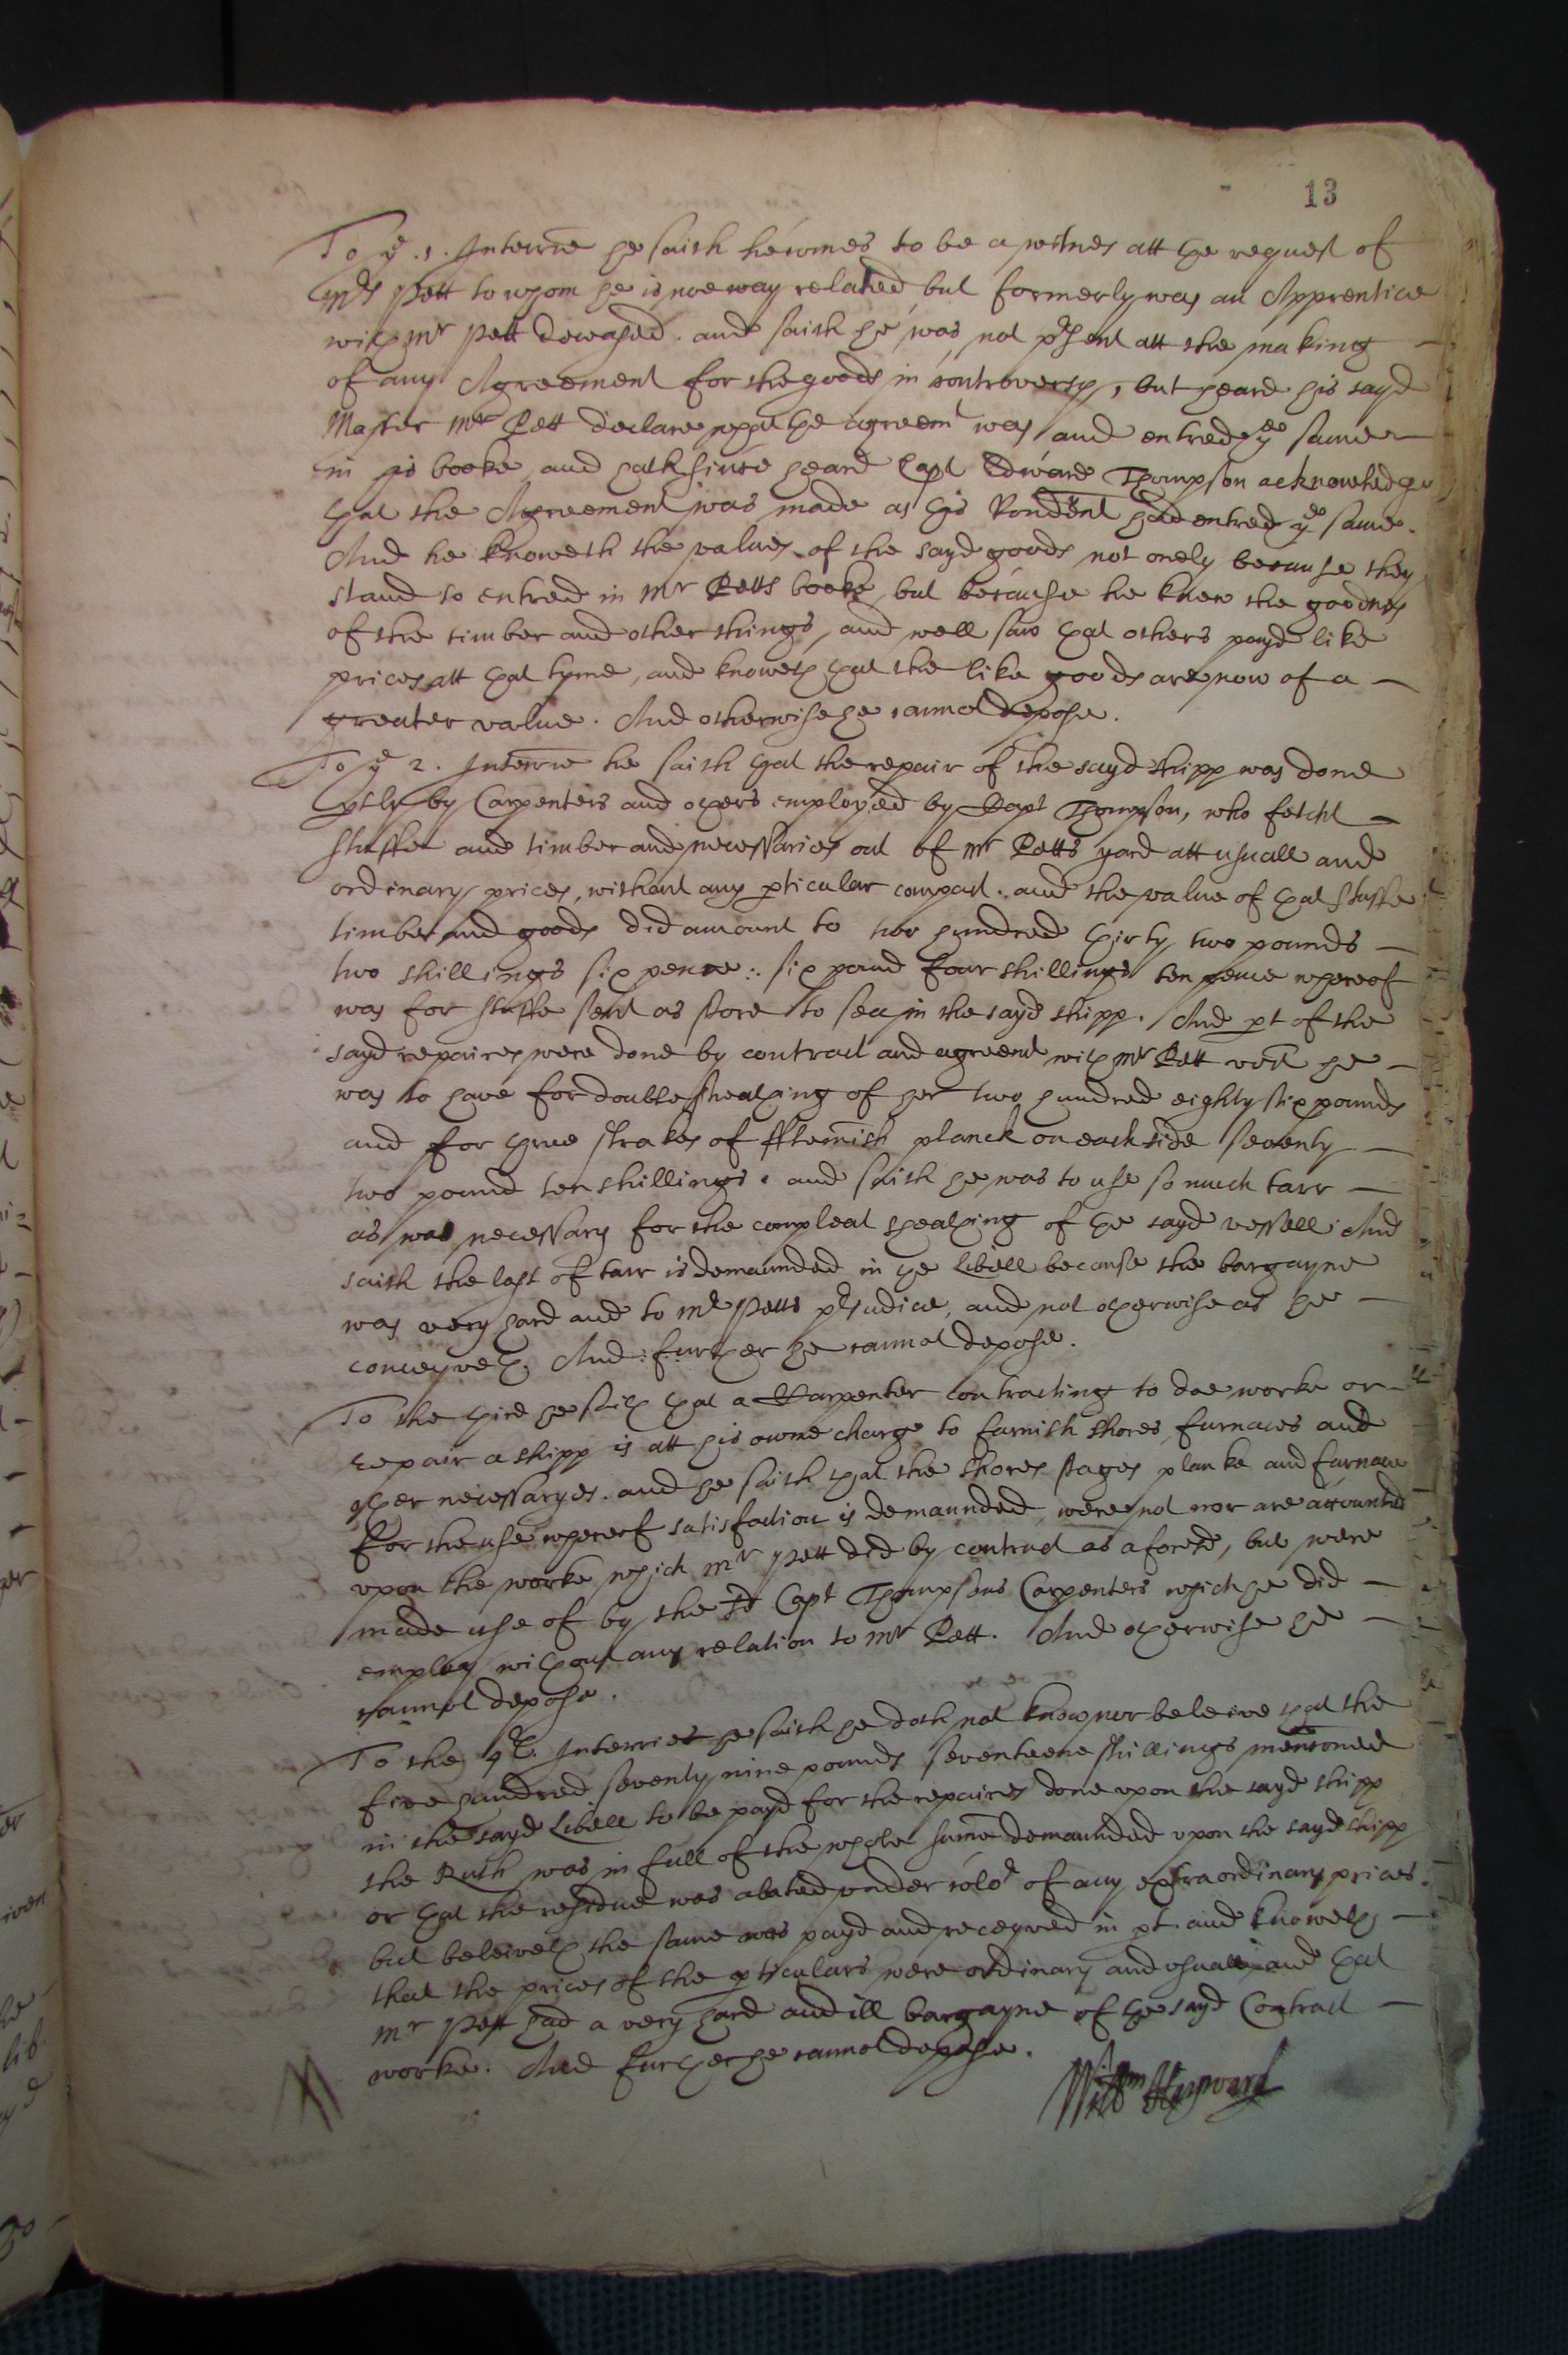 13
To ye .1. Interrie he saith he comes to be a witnes att the request of
Mrs Pett to whom he is noe way related but formerly was an Apprentice
with Mr Pett deceased. and saith he was not present att the making
of any Agreement for the goods in controversy, but heard his sayd
Master Mr Pett declare what the agreemt was and entred ye same
in his booke, and hath since heard Capt Edward Thompson acknowledge
that the Agreement was made as this Rondent had entred ye same.
And he knoweth the values of the sayd goods not onely because they
stand so entred in Mr Petts booke, but because he knew the goodnes
of the timber and other things, and well saw that others payd like
prices att that tyme, and knoweth that the like goods are now of a
greater value. And otherwise he cannot depose.
To ye 2. Interrie he saith that the repair of the sayd shipp was done
ptly by Carpenters and others employed by Capt Thompson, who fetcht
stuffe and timber and necessaries out of Mr Petts yard att usuall and
ordinary prices, without any pticular compact. and the value of that stuffe
timber and goods did amount to two hundred thirty two pounds
two shillings six pence: six pound four shillings ten pence whereof
was for stuffe sent as store to sea in the sayd shipp. And pt of the
sayd repaires were done by contract and agreemt with Mr Pett who he
was to have for double sheathing of her two hundred eighty six pounds
and for three strakes of fflemish planck on each side seventy
two pound ten shillings. and saith he was to use so much tarr
as was necessary for the compleat sheathing of the sayd vessell. And
saith the last of tarr is demaunded in ye Libell because the bargayne
was very hard and to Mr Petts prejudice, and not otherwise as he
conceyveth. And further he cannot depose.
To the third he saith that a Carpenter contracting to doe worke or
repair a shipp is att his owne charge to furnish shores, furnaces and
other necessaryes. and he saith that the shores stages planke and furnace
for the use whereof satisfaction is demaunded, were not nor are accounted
upon the worke which Mr Pett did by contract as aforesd, but were
made use of by the sd Capt Thompsons Carpenters which he did
employ without any relation to Mr Pett. And otherwise he
cannot depose.
To the 4th. Interrie he saith he doth not know nor beleive that the
five hundred seventy nine pounds seventeene shillings mentioned
in the sayd Libell to be payd for the repaires done upon the sayd shipp
the Ruth was in full of the whole summe demaunded upon the sayd shipp
or that the residue was abated under color of any extraordinary prices.
but beleiveth the same was payd and receyved in pt. and knoweth
that the prices of the pticulars were ordinary and usuall and that
Mr Pett had a very hard and ill bargayne of the sayd Contract
worke. And further he cannot depose.
Willm Heyward